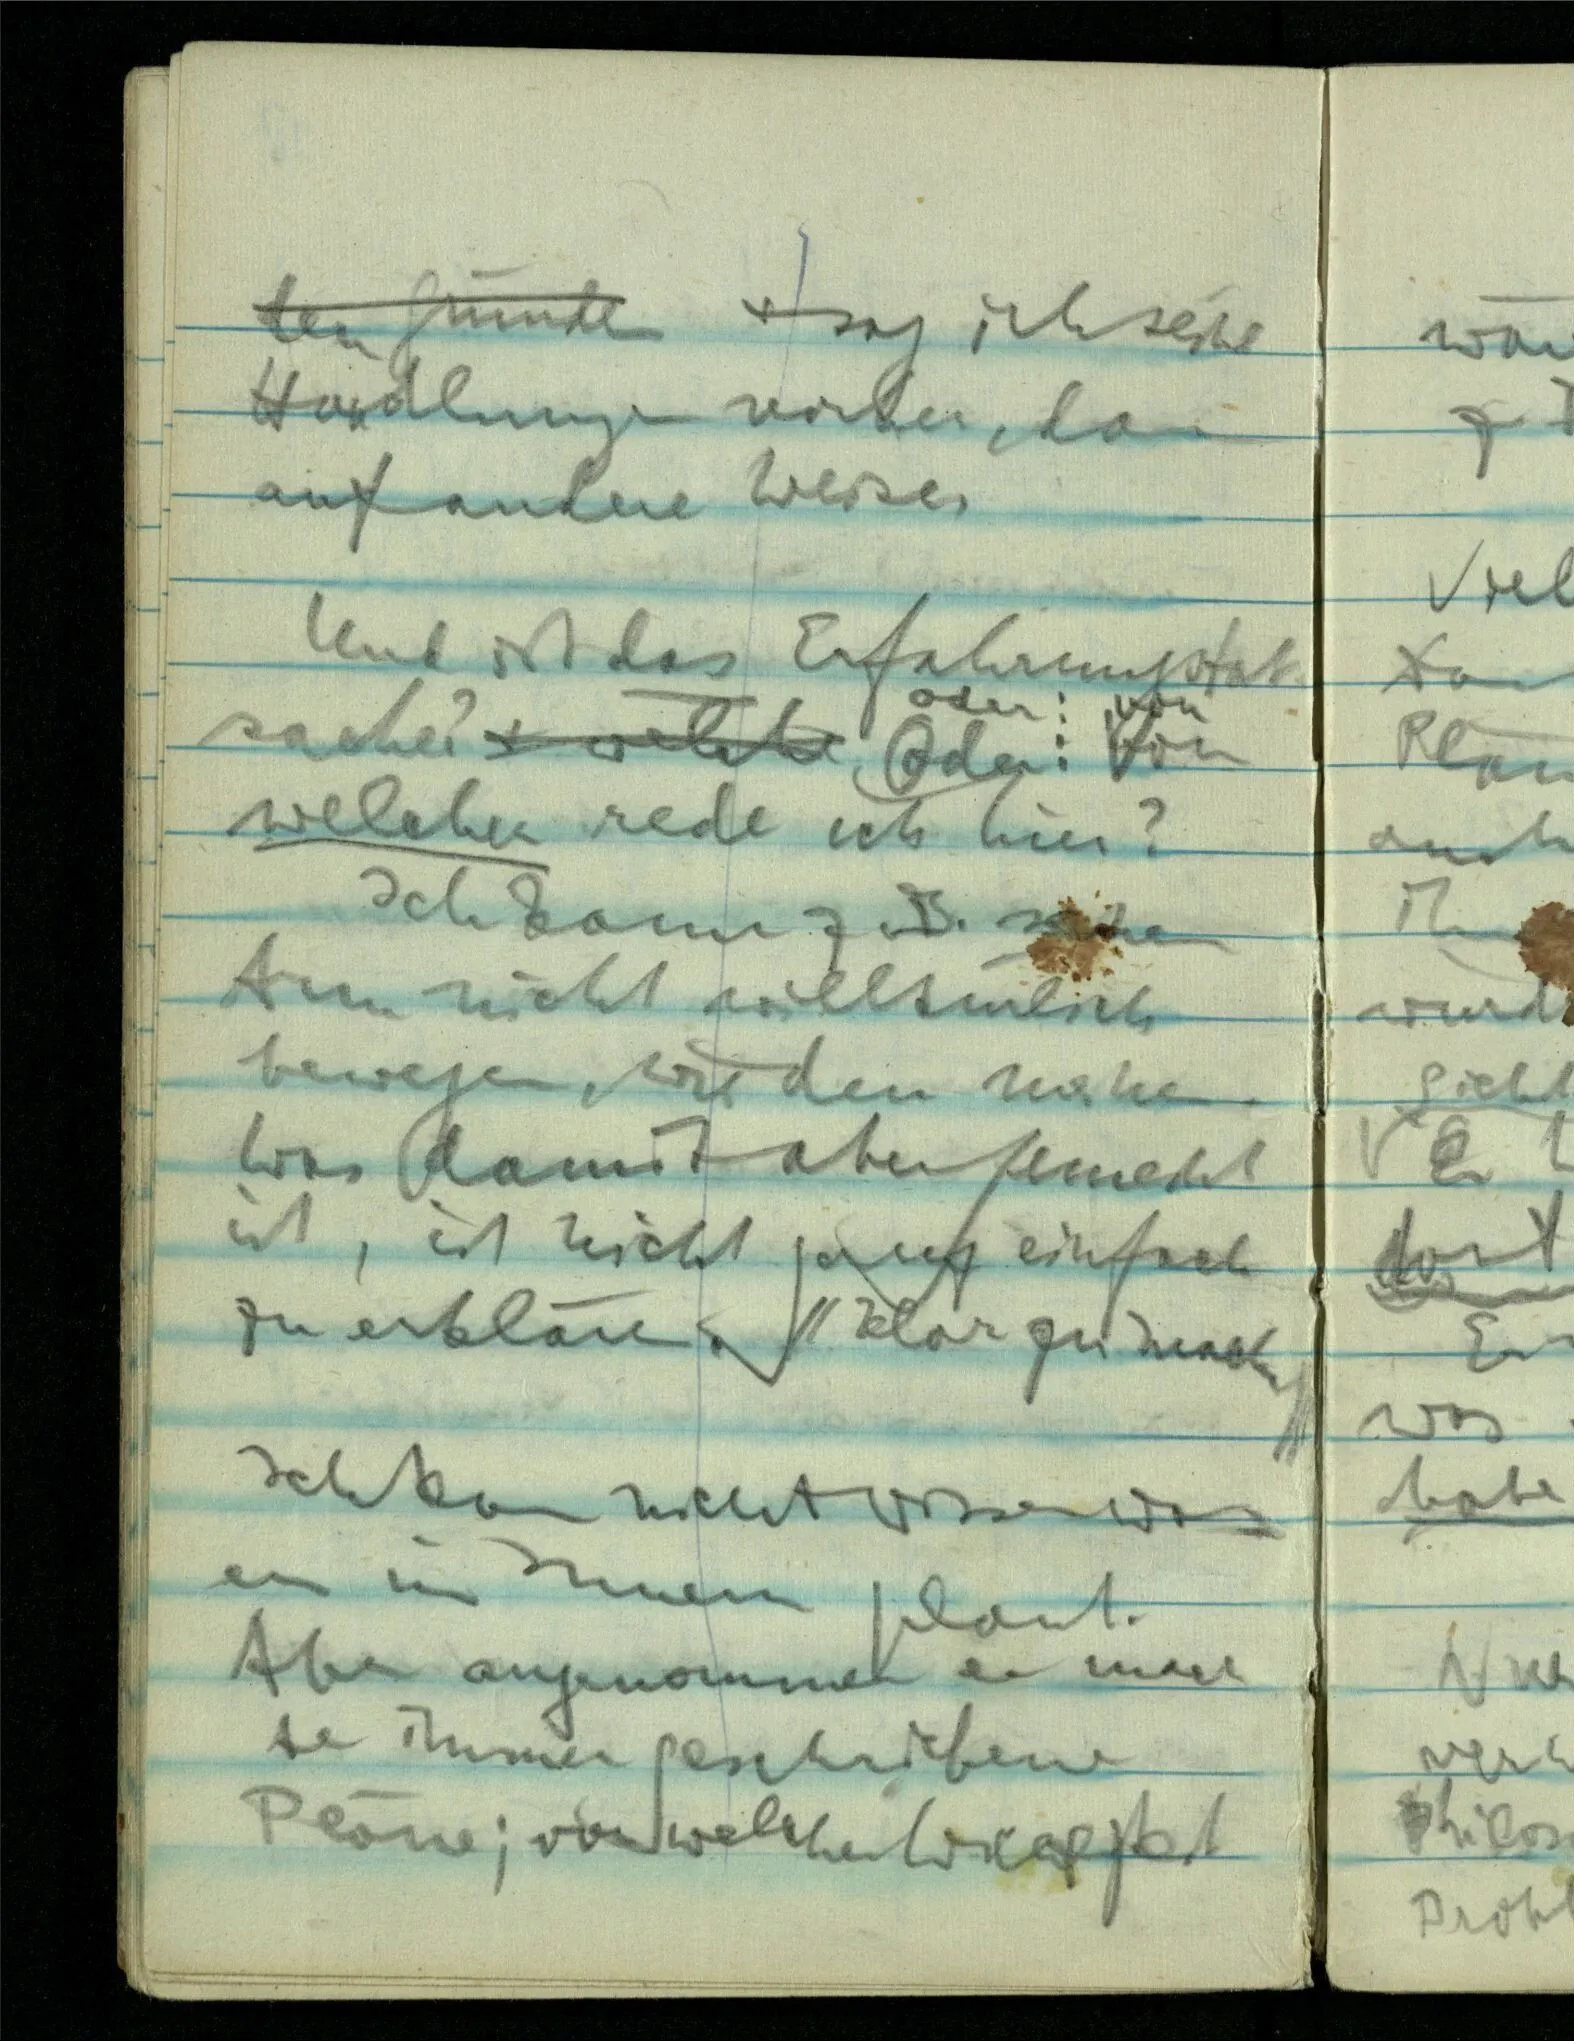 den Gründen + sag ich seine
Handlungen vorher, dan
auf andere Weise.
Und ist das Erfahrungstat-
sache? + welche oder: von
Oder: Von
welcher rede ich hier?
Ich kann z.B. seinen
Arm nicht willkürlich
bewegen, wie den meinen.
Was damit aber gemeint
ist, ist nicht ganz einfach
zu erklären. // klar zu machen //
Ich kan nicht wissen was
er im Innern plant.
Aber angenommen er mach
te immer geschriebene
Pläne; von welcher
Viel
auch
Er
dort
was
habe